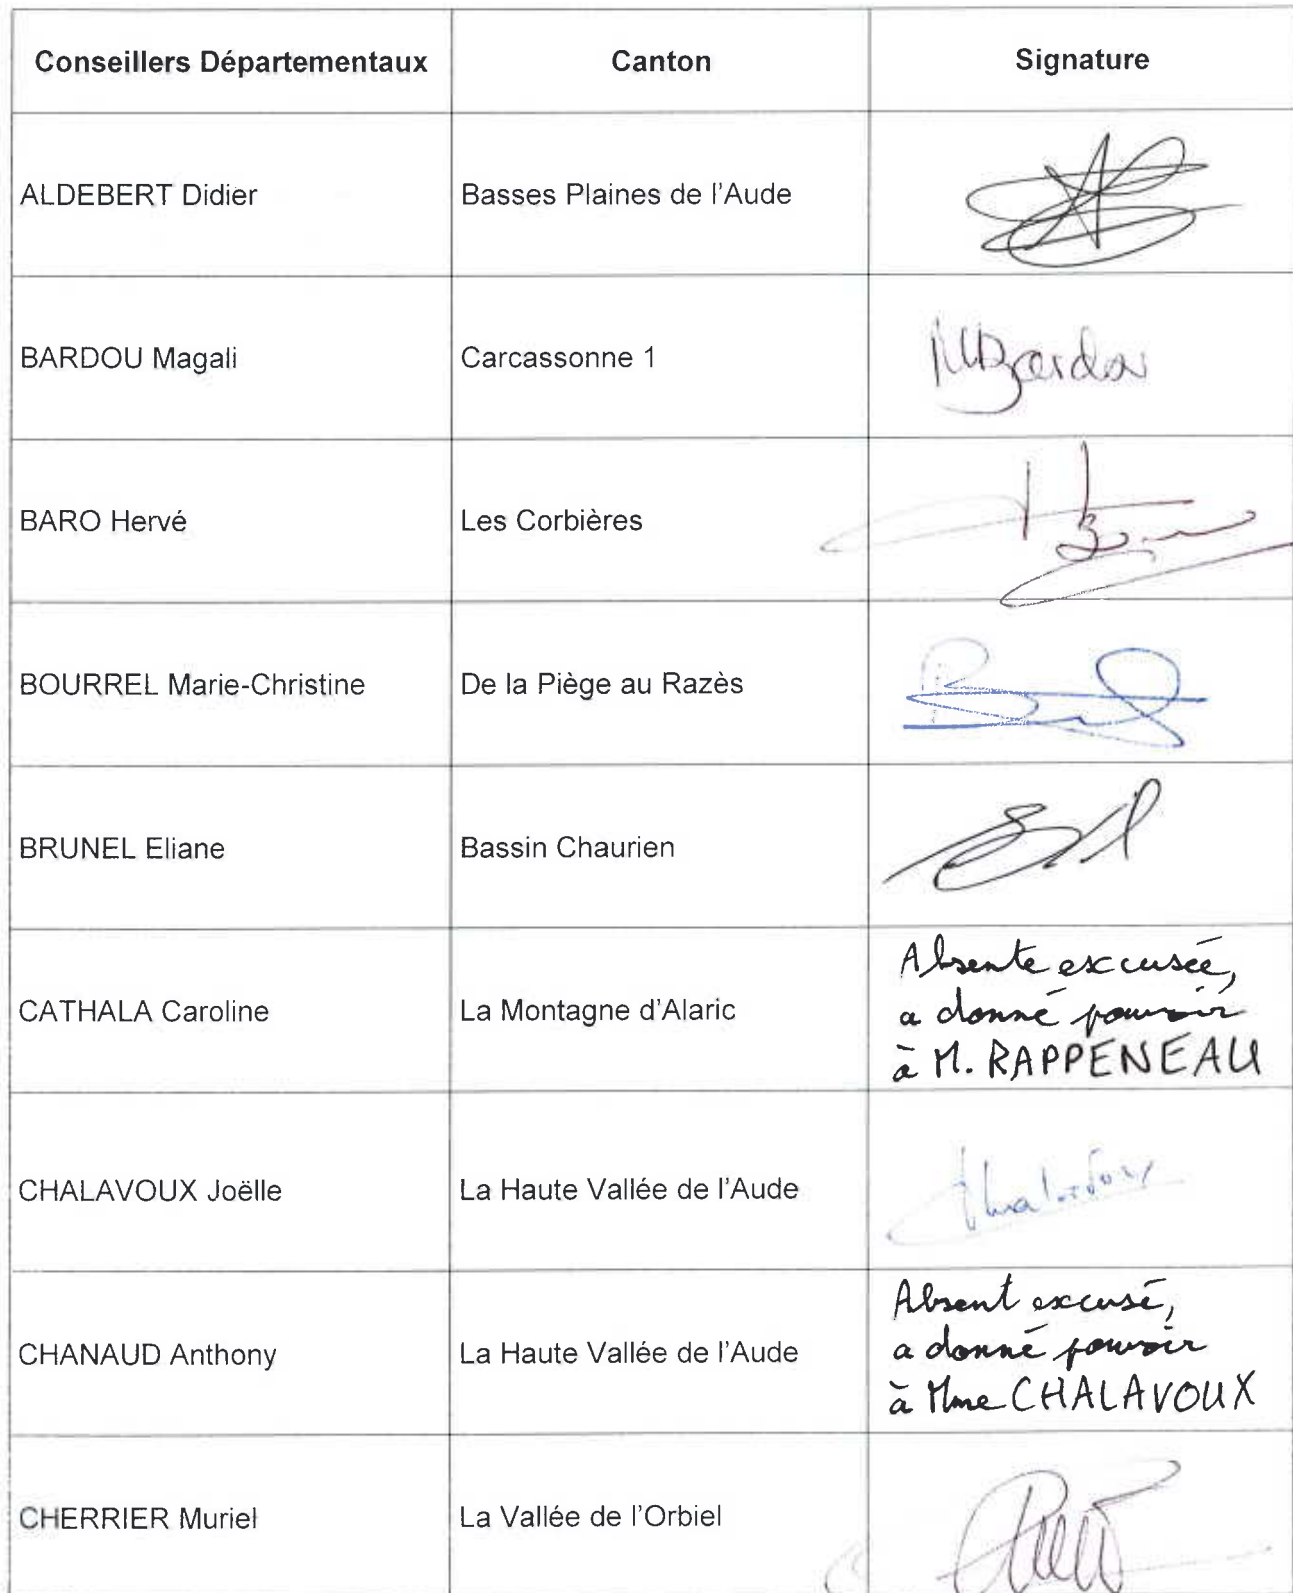 Conseillers Départementaux Canton Signature
ALDEBERT Didier Basses Plaines de l'Aude
BARDOU Magali Carcassonne 1 MBardou
BARO Hervé Les Corbières
BOURREL Marie-Christine De la Piège au Razès
BRUNEL Eliane Bassin Chaurien
CATHALA Caroline La Montagne d'Alaric Absente excusée,
a donné pouvoir
à M. RAPPENEAU
CHALAVOUX Joëlle La Haute Vallée de l'Aude Chalavoux
CHANAUD Anthony La Haute Vallée de l'Aude Absent excusé,
a donné pouvoir
à Mme CHALAVOUX
CHERRIER Muriel La Vallée de l'Orbiel